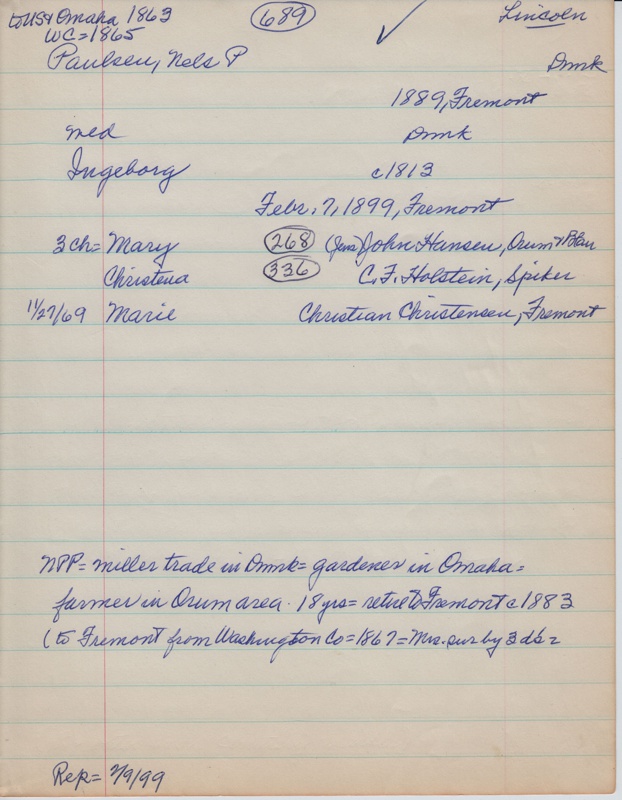 to US & Omaha 1863 689 Lincoln
WC = 1865
Paulsen, Nels P Dmrk
1889, Fremont
med Dmrk
Ingeborg c1813
Febr. 7, 1899, Fremont
3 ch = Mary 268 (Jens) John Hansen, Orum & Blair
Christena 336 C. F. Holstein, Spiker
11/27/69 Marie Christian Christensen, Fremont
NPP = miller trade in Dmrk = gardener in Omaha =
farmer in Orum area. 18 yrs = retire to Fremont c 1883
( to Fremont from Washington Co = 1867 = Mrs. sur by 3 ds =
Rep = 2/9/99